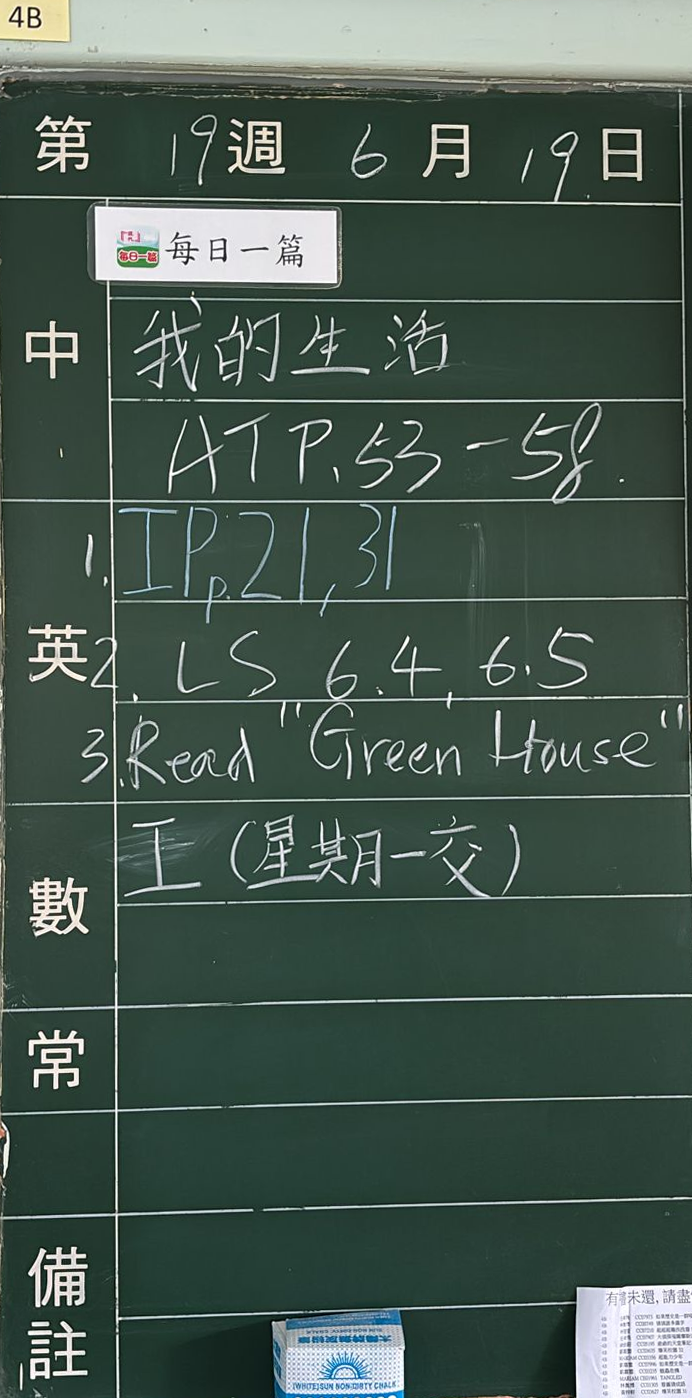 4B
第 19 週 6 月 19 日
每日一篇
中
我的生活
ATP.53-58.
1. IPp.21,31
英
2. LS 6.4, 6.5
3. Read "Green House"
數
工(星期一交)
常
備註
(WHITE)SUN NON DIRTY CHALK